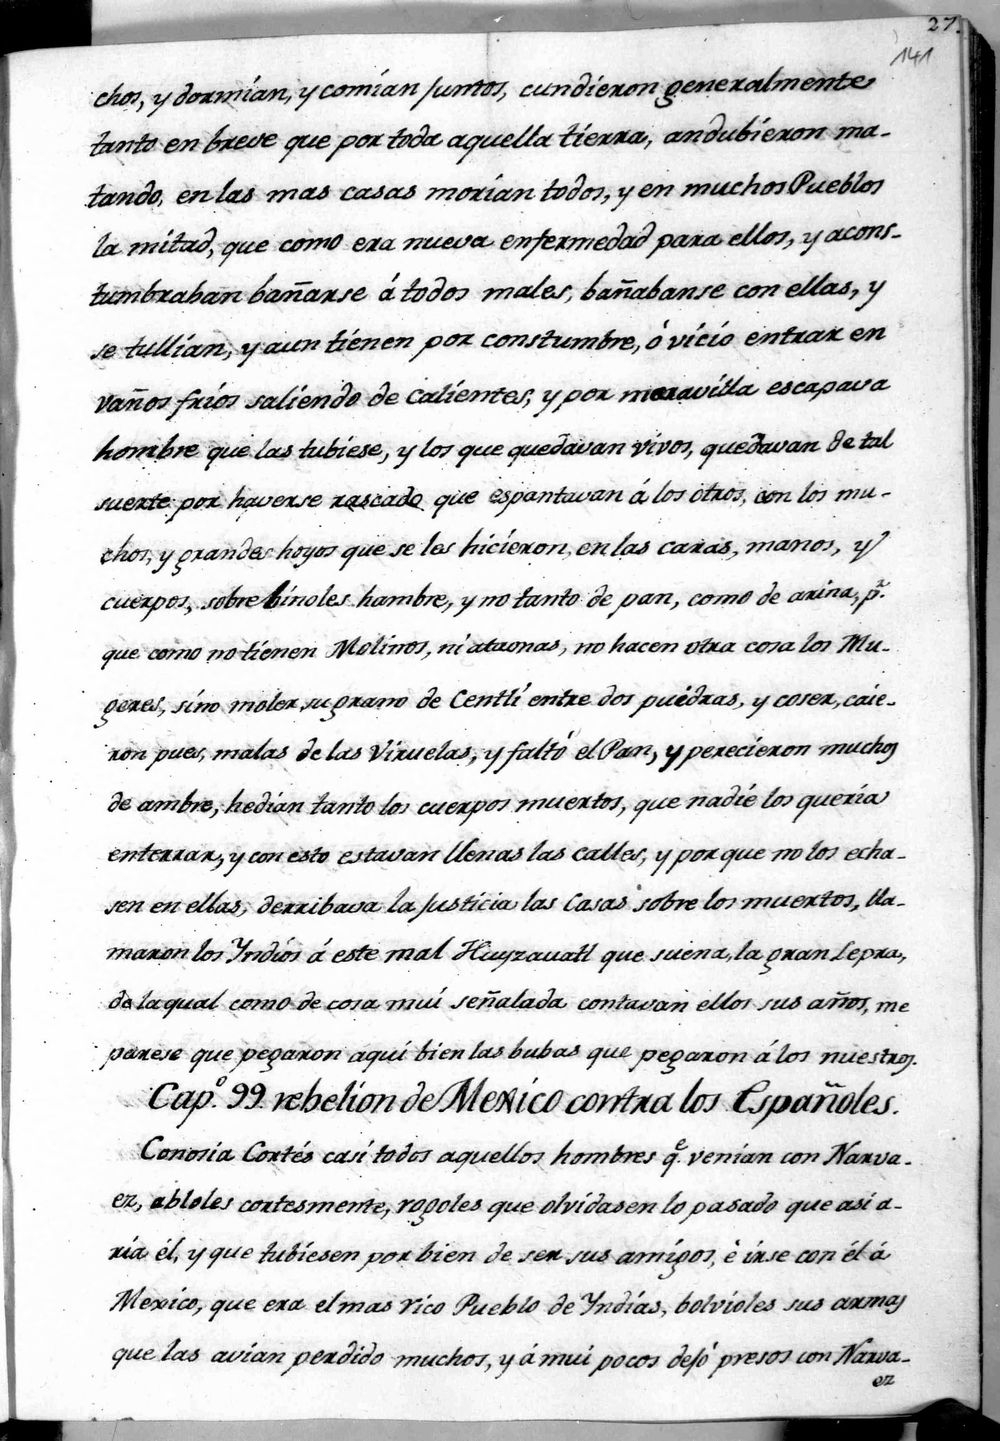 27.
141
chos, y dormian, y comian juntos, cundieron generalmente
tanto en breve que por toda aquella tierra, andubieron ma-
tando, en las mas casas morian todos, y en muchos Pueblos
la mitad, que como era nueva enfermedad para ellos, y acons-
tumbraban bañarse á todos males, bañabanse con ellas, y
se tullian, y aun tienen por constumbre, ó vicio entrar en
vaños frios saliendo de calientes, y por maravilla escapava
hombre que las tubiese, y los que quedavan vivos, quedavan de tal
suerte por haverse rascado que espantavan á los otros, con los mu-
chos, y grandes hoyos que se les hicieron, en las caras, manos, y
cuerpos, sobre binoles hambre, y no tanto de pan, como de arina, pr.
que como no tienen Molinos, ni ataonas, no hacen otra cosa los Mu-
geres, sino moler su grano de Centli entre dos puedras, y coser, caie-
ron pues, malas de las Viruelas, y faltó el Pan, y perecieron muchos
de ambre, hedian tanto los cuerpos muertos, que nadie los queria
enterrar, y con esto estavan llenas las calles, y por que no los echa-
sen en ellas, derribava la Justicia las Casas sobre los muertos, lla-
maron los Yndios á este mal Huyzauatl que suena, la gran Lepra,
de la qual como de cosa mui señalada contavan ellos sus años, me
parese que pegaron aqui bien las bubas que pegaron á los nuestros.
Capo. 99. rebelion de Mexico contra los Españoles.
Conosia Cortés casi todos aquellos hombres qe. venian con Narva-
ez, abloles cortesmente, rogoles que olvidasen lo pasado que asi a-
ria él, y que tubiesen por bien de ser sus amigos, è irse con él á
Mexico, que era el mas rico Pueblo de Yndias, bolvioles sus armas
que las avian perdido muchos, y á mui pocos dejó presos con Narva-
ez